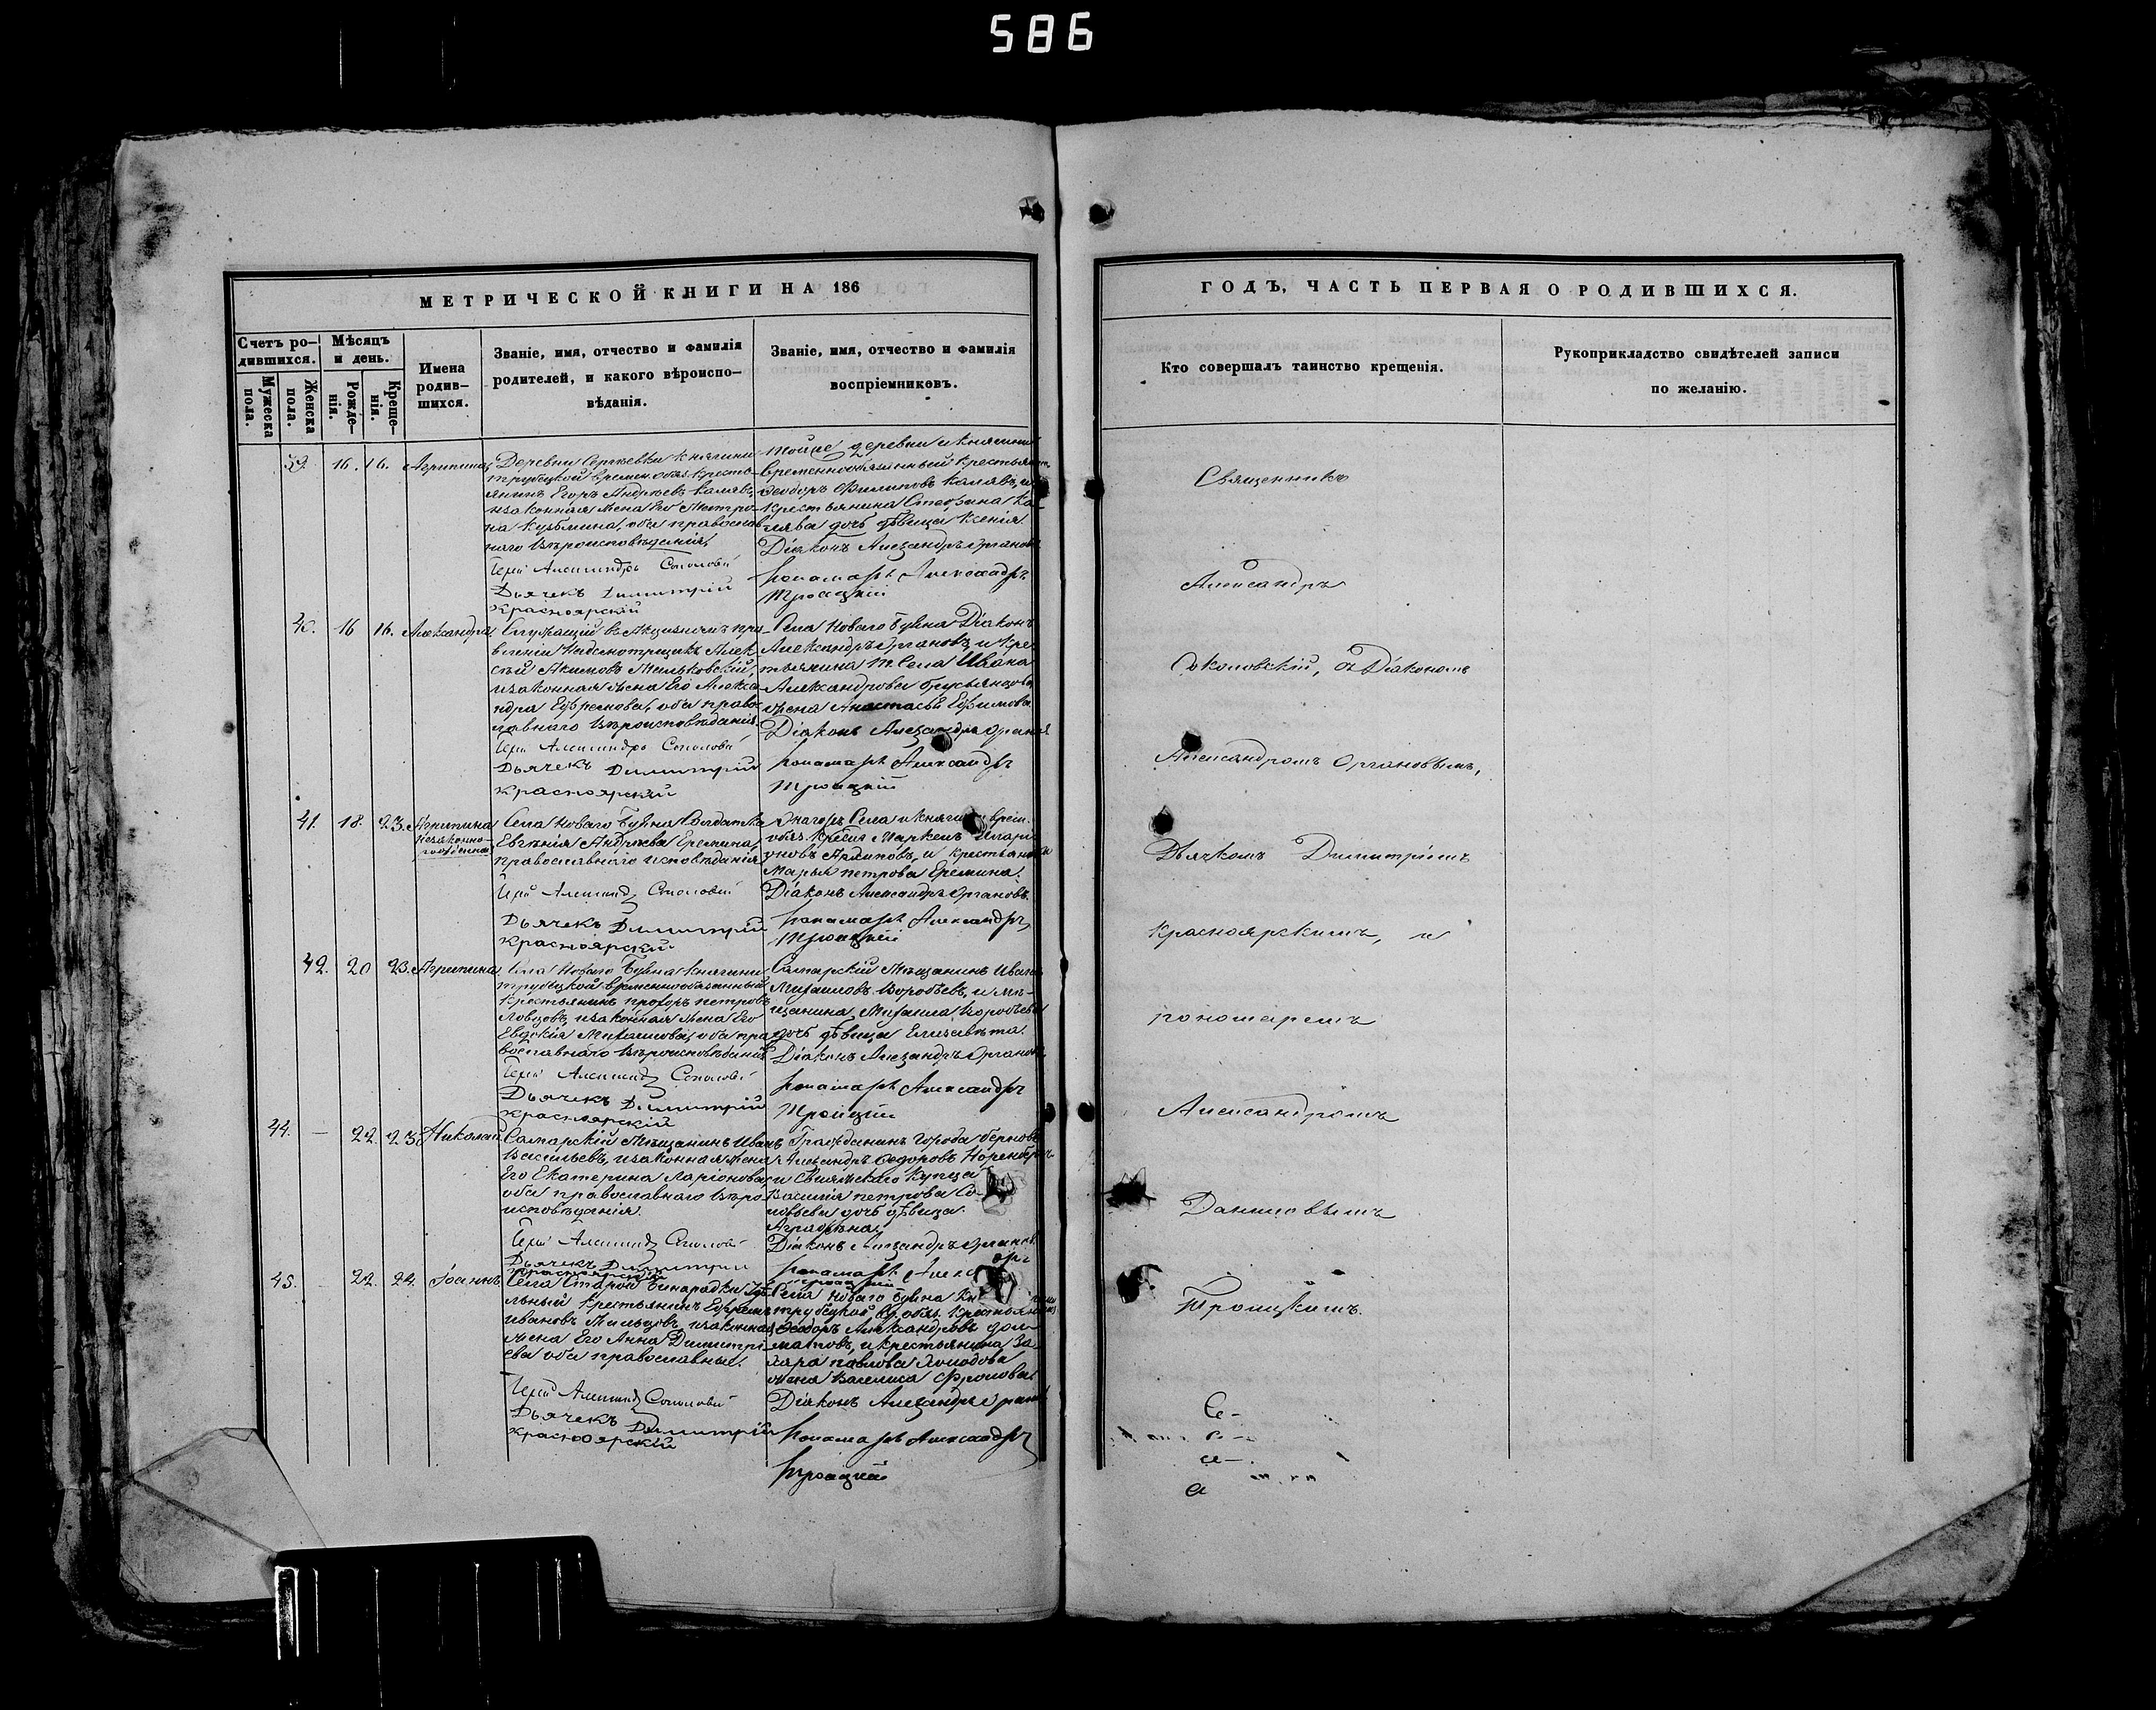 586
МЕТРИЧЕСКОЙ КНИГИ НА 186
Счетъ ро-
дившихся.
Мужеска
пола.
Женска
пола.
Мѣсяцъ
и день.
Рожде-
нія.
Креще-
нія.
Имена
родив-
шихся.
Званіе, имя, отчество и фамилія
родителей, и какого вѣроиспо-
вѣданія.
Званіе, имя, отчество и фамилія
воспріемниковъ.
39. 16. 16. Агрипина
Деревни Сергѣевки княгини
трубецкой времен. обяз. кресть-
янинъ Егоръ Андреевъ
изаконная жена Его Матро-
на Кузьмина, оба православ
наго вѣроисповѣданія,
Александръ
Дьячекъ Димитрій
Красноярскій
тойже деревни и княгини
временнообязанный крестьян
Феодоръ Филиповъ и
крестьянина Стефана Ка-
лява дочь дѣвица Ксенія.
Діаконъ Александръ Органовъ
понамарь Александръ
Троицкій
40. 16 16. Александра
Служащій въ Акцизномъ пра-
вленіи Надсмотрщикъ Алек
сѣй Акимовъ
изаконная жена Его Алекса
ндра Ефремова, оба право
славнаго вѣроисповѣданія,
Дьячекъ Димитрій
Красноярскій
Села Новаго Буяна Діаконъ
Александръ Органовъ и кре
стьянина т. села Ивана
Александрова
жена Анастасья Ефимова
Діаконъ Александръ Органов
понамарь Александръ
Троицкій
41. 18. 23. Агрипина
незаконно-
рожденная
Села Новаго Буяна Солдатка
Евгенія Андреева Еремина,
православнаго исповѣданія
Дьячекъ Димитрій
Красноярскій
Онагожъ Села и княгини врем.
обяз. крест. Маркелъ
и крестьянка
Марья петрова Еремина.
Діаконъ Александръ Органовъ.
понамарь Александръ
Троицкій
42. 20 23. Агрипина
Села Новаго Буяна княгини
трубецкой временнообязанный
крестьянинъ прохоръ петровъ
Ловцовъ, изаконная жена Его
Евдокія Михаилова, оба пра
вославнаго вѣроисповѣданія
Дьячекъ Димитрій
Красноярскій
Самарскій Мѣщанинъ Иванъ
Михаиловъ Воробьевъ, и мѣ-
щанина Михаила Воробьева
дочь дѣвица Елизавета.
Діаконъ Александръ Органовъ
понамарь Александръ
Троицкій
44. — 22. 23. Николай
Самарскій Мѣщанинъ Иванъ
Васильевъ, изаконная жена
Его Екатерина Ларіонова,
оба православнаго вѣро
исповѣданія.
Дьячекъ Димитрій
Красноярскій
Гражданинъ города
Александръ Федоровъ
и купца
Василія петрова Со-
ловьева дочь дѣвица
Аграфена
Діаконъ Александръ Органов
понамарь
45. 22. 24. Іоаннъ
Села Старой Бинарадки Удѣ
льный крестьянинъ Ефремъ
Ивановъ изаконная
жена Его Анна Димитрі-
ева оба православные.
Дьячекъ Димитрій
Красноярскій
Села Новаго Буяна
трубецкой вр. обяз. крестьянинъ
Феодоръ Александровъ
и крестьянина За
хара павлова Холодова
жена Василиса Фролова
Діаконъ Александръ
понамарь Александръ
Троицкій
ГОДЪ, ЧАСТЬ ПЕРВАЯ О РОДИВШИХСЯ.
Кто совершалъ таинство крещенія.
Рукоприкладство свидѣтелей записи
по желанію.
Священникъ
Александръ
Соколовскій, съ Діакономъ
Александромъ Органовымъ,
Дьячкомъ Димитріемъ
Красноярскимъ, и
пономаремъ
Александромъ
Даниловымъ
Троицкимъ.